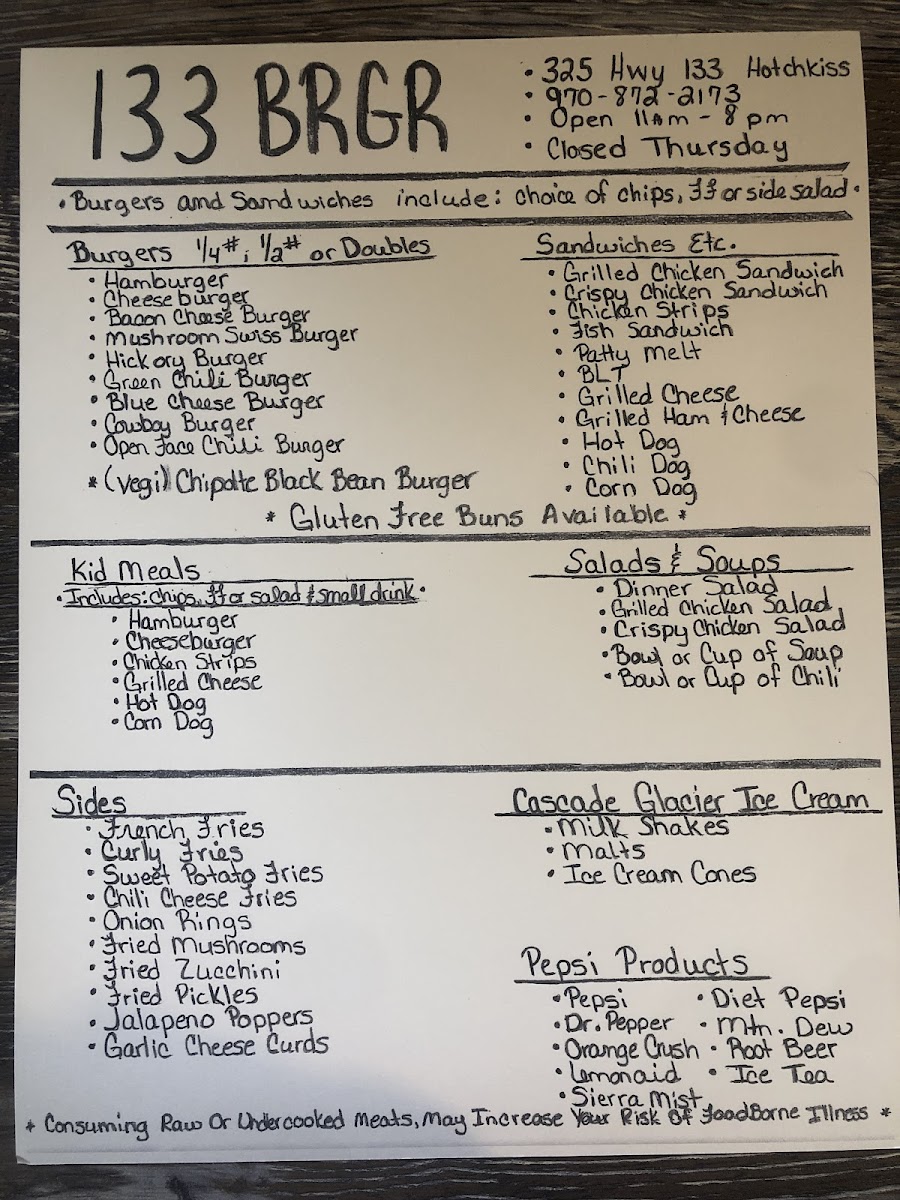 133 BRGR
• 325 Hwy 133 Hotchkiss
• 970-872-2173
• Open 11am - 8pm
• Closed Thursday
• Burgers and Sandwiches include: choice of chips, ff or side salad •
Burgers 1/4#, 1/2# or Doubles
• Hamburger
• Cheeseburger
• Bacon Cheese Burger
• Mushroom Swiss Burger
• Hickory Burger
• Green Chili Burger
• Blue Cheese Burger
• Cowboy Burger
• Open Face Chili Burger
* (vegi) Chipotle Black Bean Burger
Sandwiches Etc.
• Grilled Chicken Sandwich
• Crispy Chicken Sandwich
• Chicken Strips
• Fish Sandwich
• Patty Melt
• BLT
• Grilled Cheese
• Grilled Ham & Cheese
• Hot Dog
• Chili Dog
• Corn Dog
* Gluten Free Buns Available *
Kid Meals
• Includes: chips, ff or salad & small drink •
• Hamburger
• Cheeseburger
• Chicken Strips
• Grilled Cheese
• Hot Dog
• Corn Dog
Salads & Soups
• Dinner Salad
• Grilled Chicken Salad
• Crispy Chicken Salad
• Bowl or Cup of Soup
• Bowl or Cup of Chili
Sides
• French Fries
• Curly Fries
• Sweet Potato Fries
• Chili Cheese Fries
• Onion Rings
• Fried Mushrooms
• Fried Zucchini
• Fried Pickles
• Jalapeno Poppers
• Garlic Cheese Curds
Cascade Glacier Ice Cream
• Milk Shakes
• Malts
• Ice Cream Cones
Pepsi Products
• Pepsi • Diet Pepsi
• Dr. Pepper • Mtn. Dew
• Orange Crush • Root Beer
• Lemonaid • Ice Tea
• Sierra Mist
* Consuming Raw Or Undercooked Meats, May Increase Your Risk Of FoodBorne Illness *